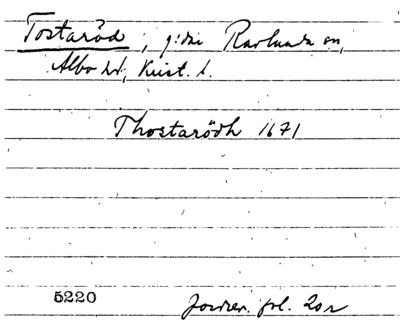 Tostaröd, g:d i Ravlunda sn,
Albo hd, Krist. l.
Thostarödh 1671
5220 Jordrev. fol. 20r